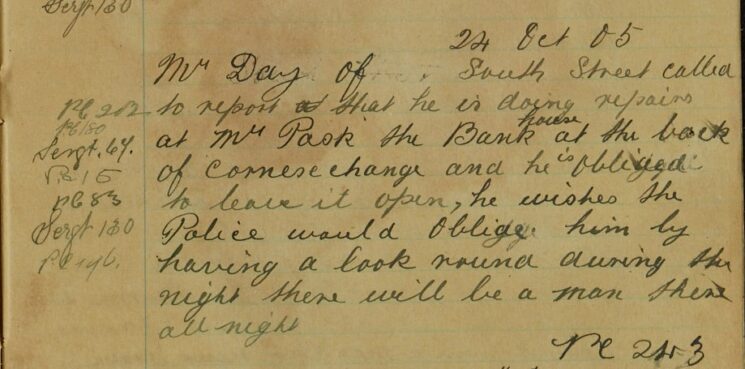 Sergt 130
24 Oct 05
Mr Day of . South Street called
to report that he is doing repairs
at Mr Pask the Bank house at the back
of Cornexchange and he is obliged
to leave it open, he wishes the
Police would Oblige him by
having a look round during the
night there will be a man there
all night
PC 243
PC 202
PC 180
Sergt. 64.
PC 15
PC 83
Sergt 130
PC 196.